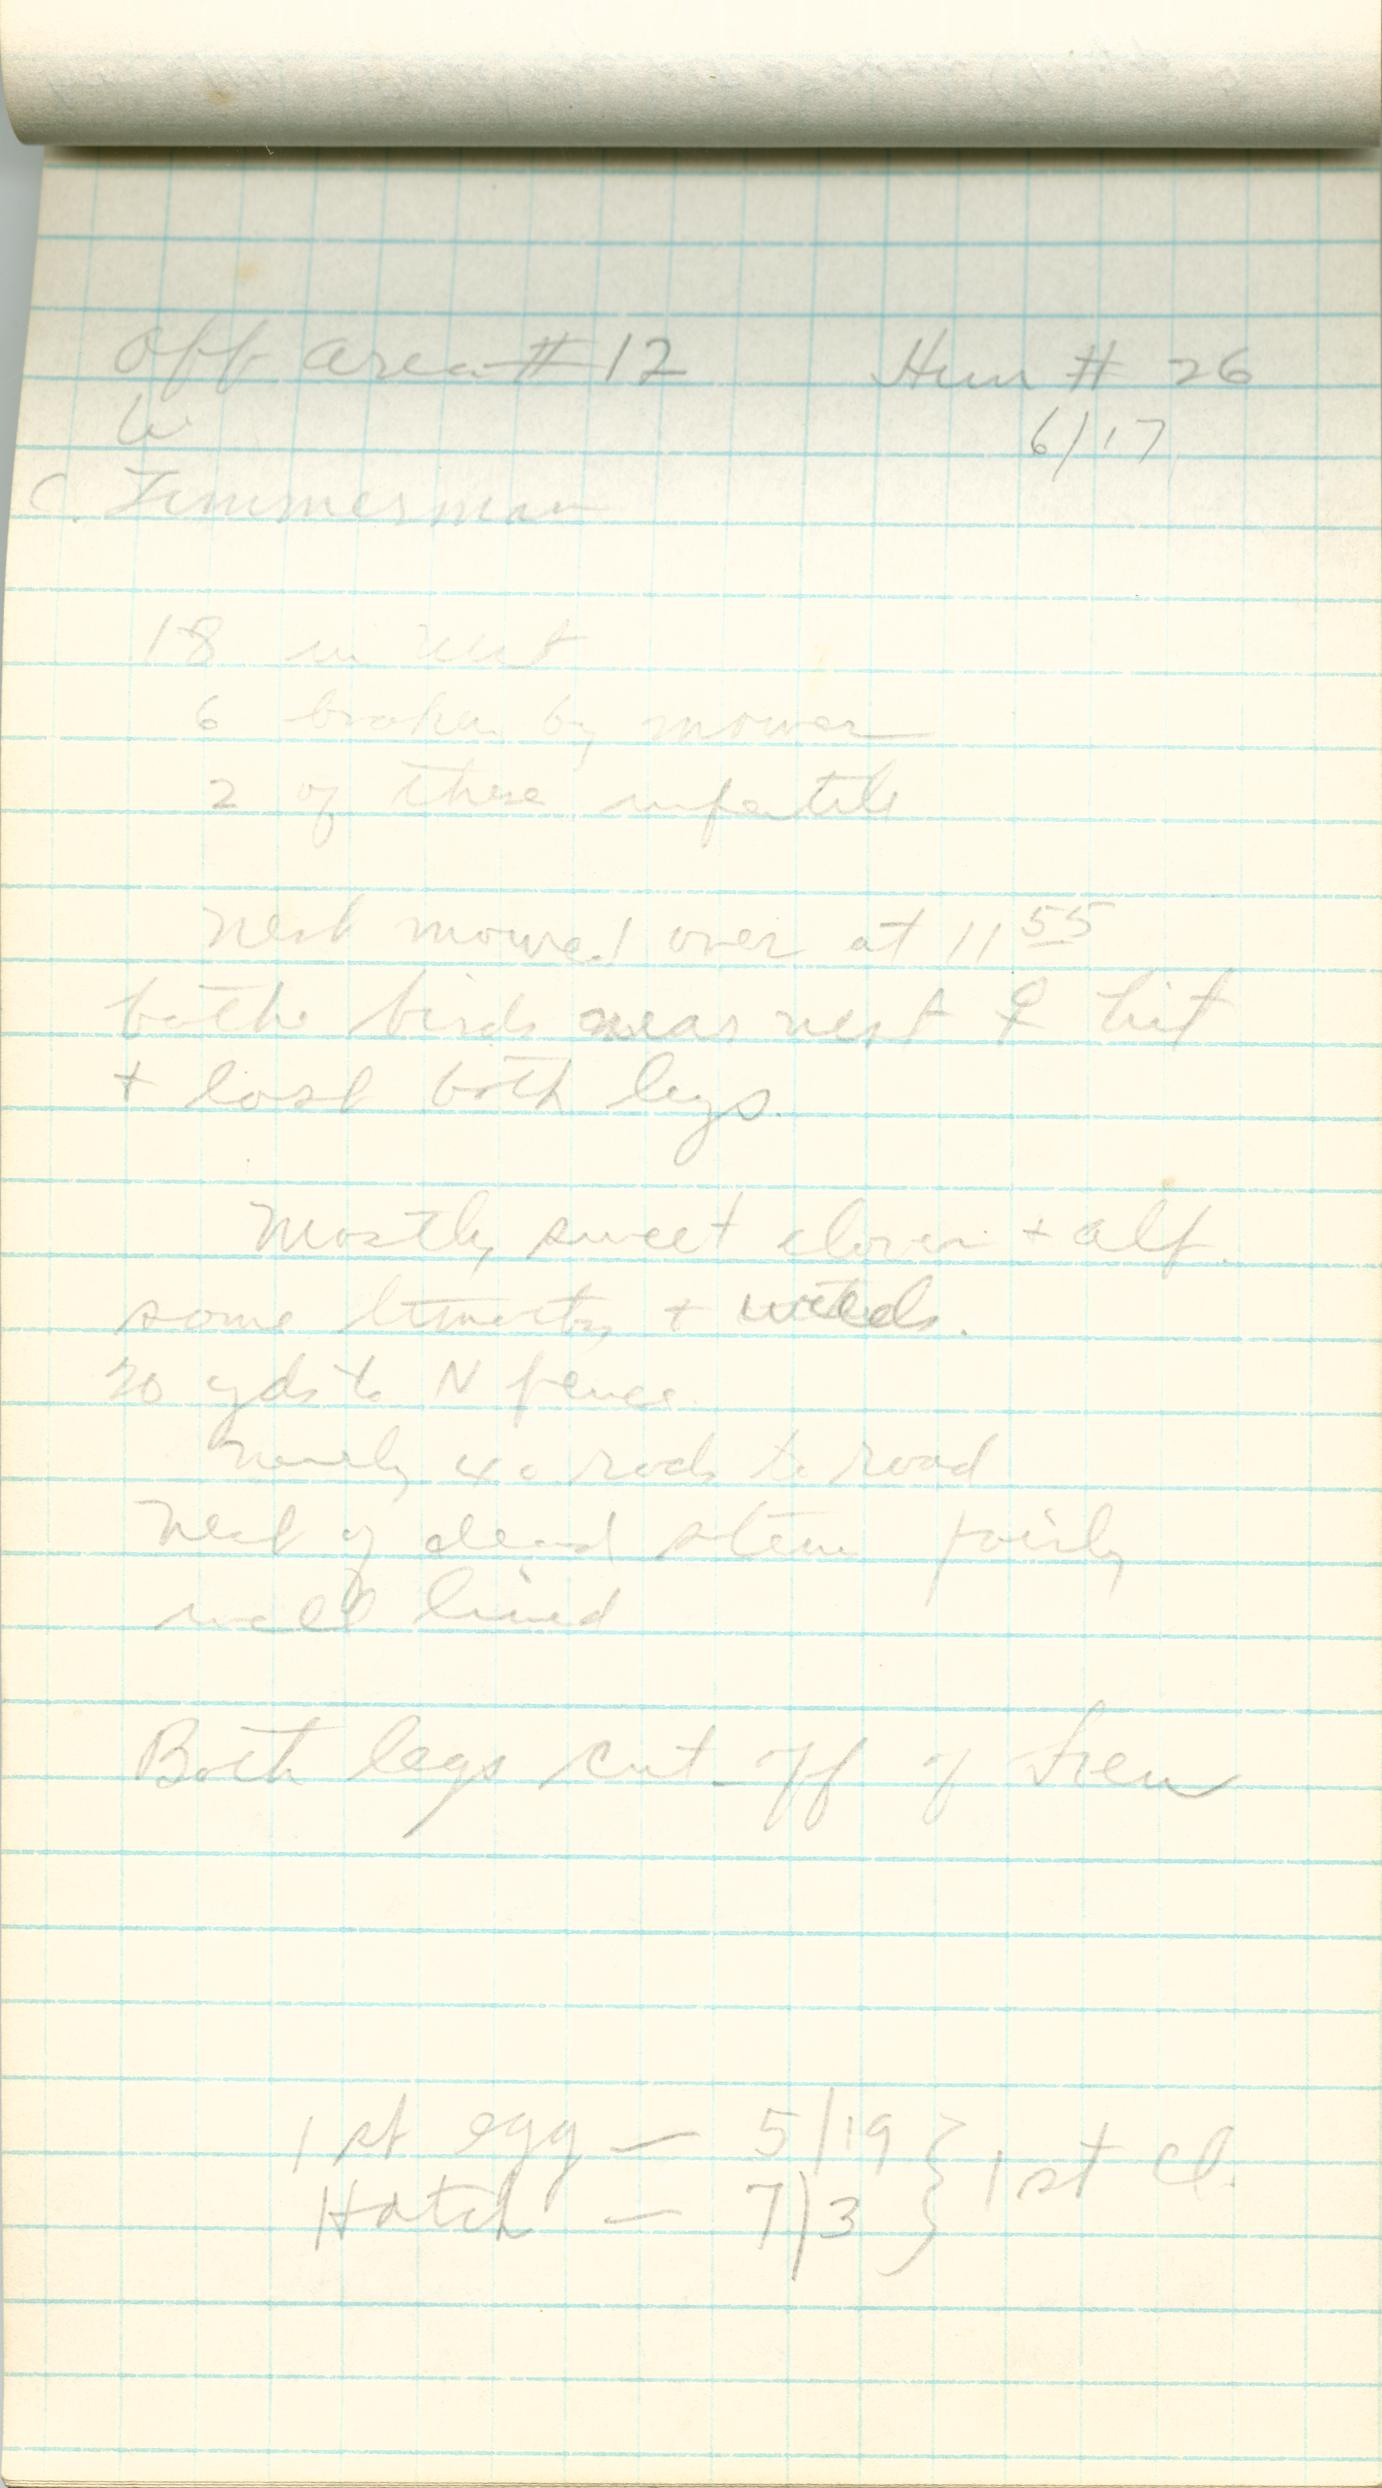 Off area #12 Hun # 26
W 6/17
C. Timmerman
18 in nest
6 broken by mower
2 of these infertile
Nest mowed over at 11 55
both birds near nest ♀ hit
+ lost both legs.
Mostly sweet clover + alf.
some timothy + weeds.
20 yds to N fence.
Nearly 40 rods to road
Nest of dead stems fairly
well lined
Both legs cut off of hen
1st egg — 5/19 } 1st cl.
Hatch — 7/3